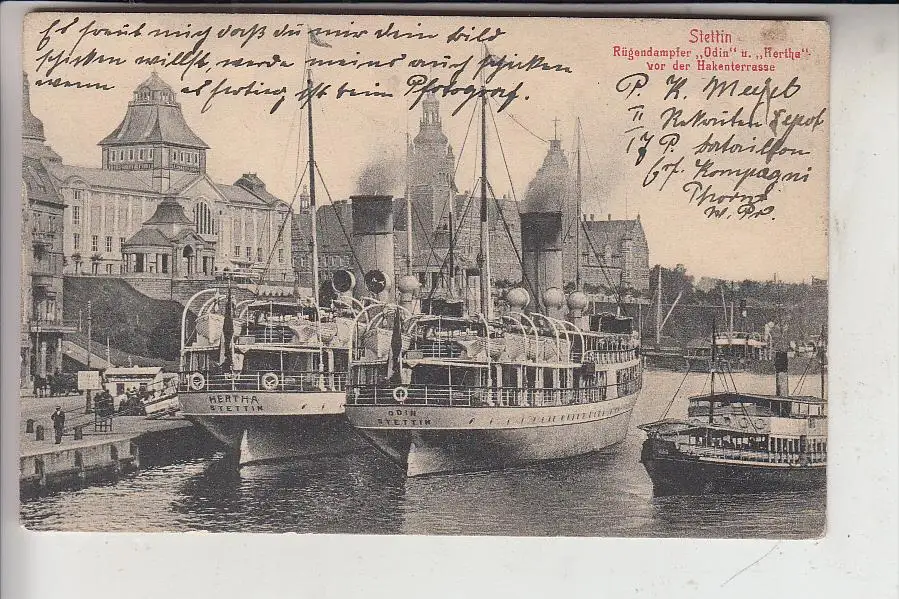 Es freut mich daß du mir dein Bild
schicken willst, werde meins auch schicken
wenn es fertig ist beim Photograf.
Stettin
Rügendampfer „Odin“ u. „Hertha“
vor der Hakenterrasse
P. K.
II Rekruten Depot
17 P. bataillon
Kompagni
Thorn
W. Pr.
HERTHA
STETTIN
ODIN
STETTIN